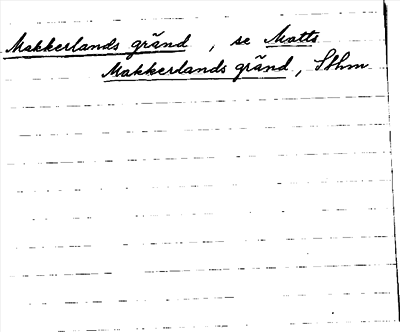 Makkerlands gränd, se Matts
Makkerlands gränd, Sthm